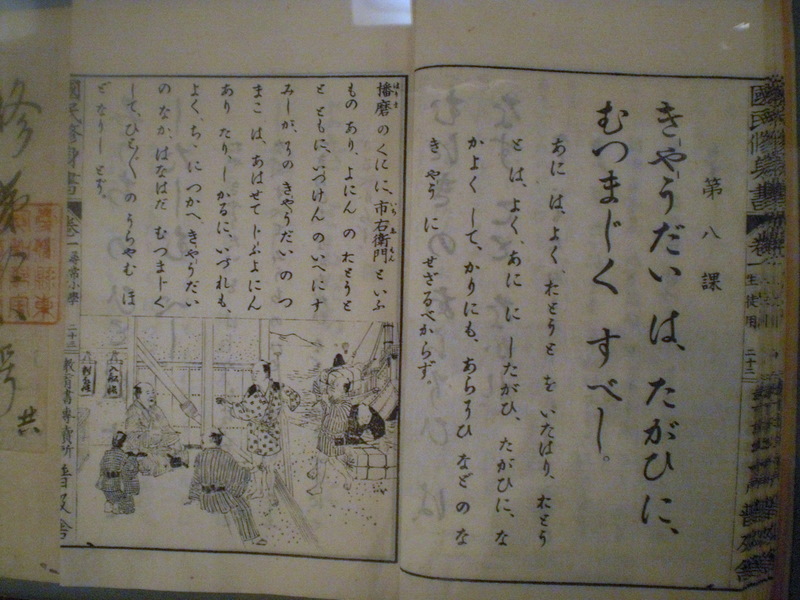 第八課
きやうだいは、たがひに、
むつまじくすべし。
あには、よく、おとうとをいたはり、おとう
とは、よく、あににしたがひ、たがひに、な
かよくして、かりにも、あらそひなどのな
きやうにせざるべからず。
國民修身書 卷一 生徒用 二十二
播磨のくにに、市右衞門といふ
ものあり、よにんのおとうと
とともに、いつけんのいへにす
みしが、そのきやうだいのつ
まこは、あはせて十ふよにん
ありたり、しかるに、いづれも、
よく、ちゝにつかへ、きやうだい
のなか、はなはだむつまじく
して、ひとびとのうらやむほ
どなりしとぞ。
國民修身書 卷一 尋常小學 二十三 教育書專賣所 普及舍